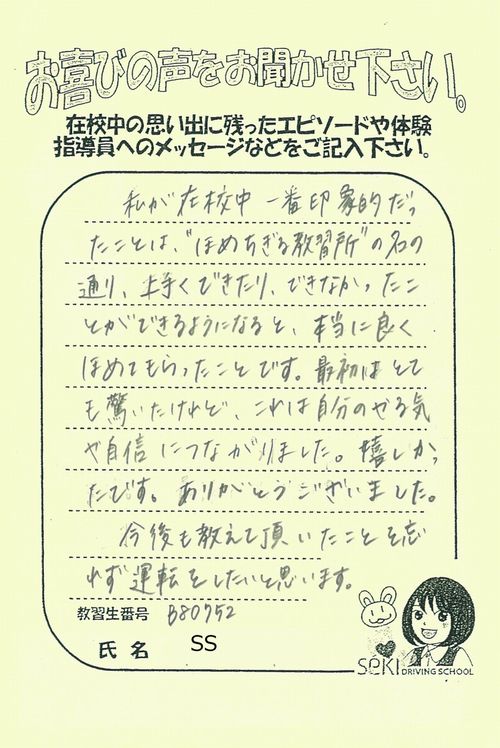 お喜びの声をお聞かせ下さい。
在校中の思い出に残ったエピソードや体験
指導員へのメッセージなどをご記入下さい。
私が在校中一番印象的だっ
たことは、"ほめちぎる教習所"の名の
通り、上手くできたり、できなかったこ
とができるようになると、本当に良く
ほめてもらったことです。最初はとて
も驚いたけれど、これは自分のやる気
や自信につながりました。嬉しかっ
たです。ありがとうございました。
今後も教えて頂いたことを忘
れず運転をしたいと思います。
教習生番号 B80752
氏名 SS
SEKI DRIVING SCHOOL